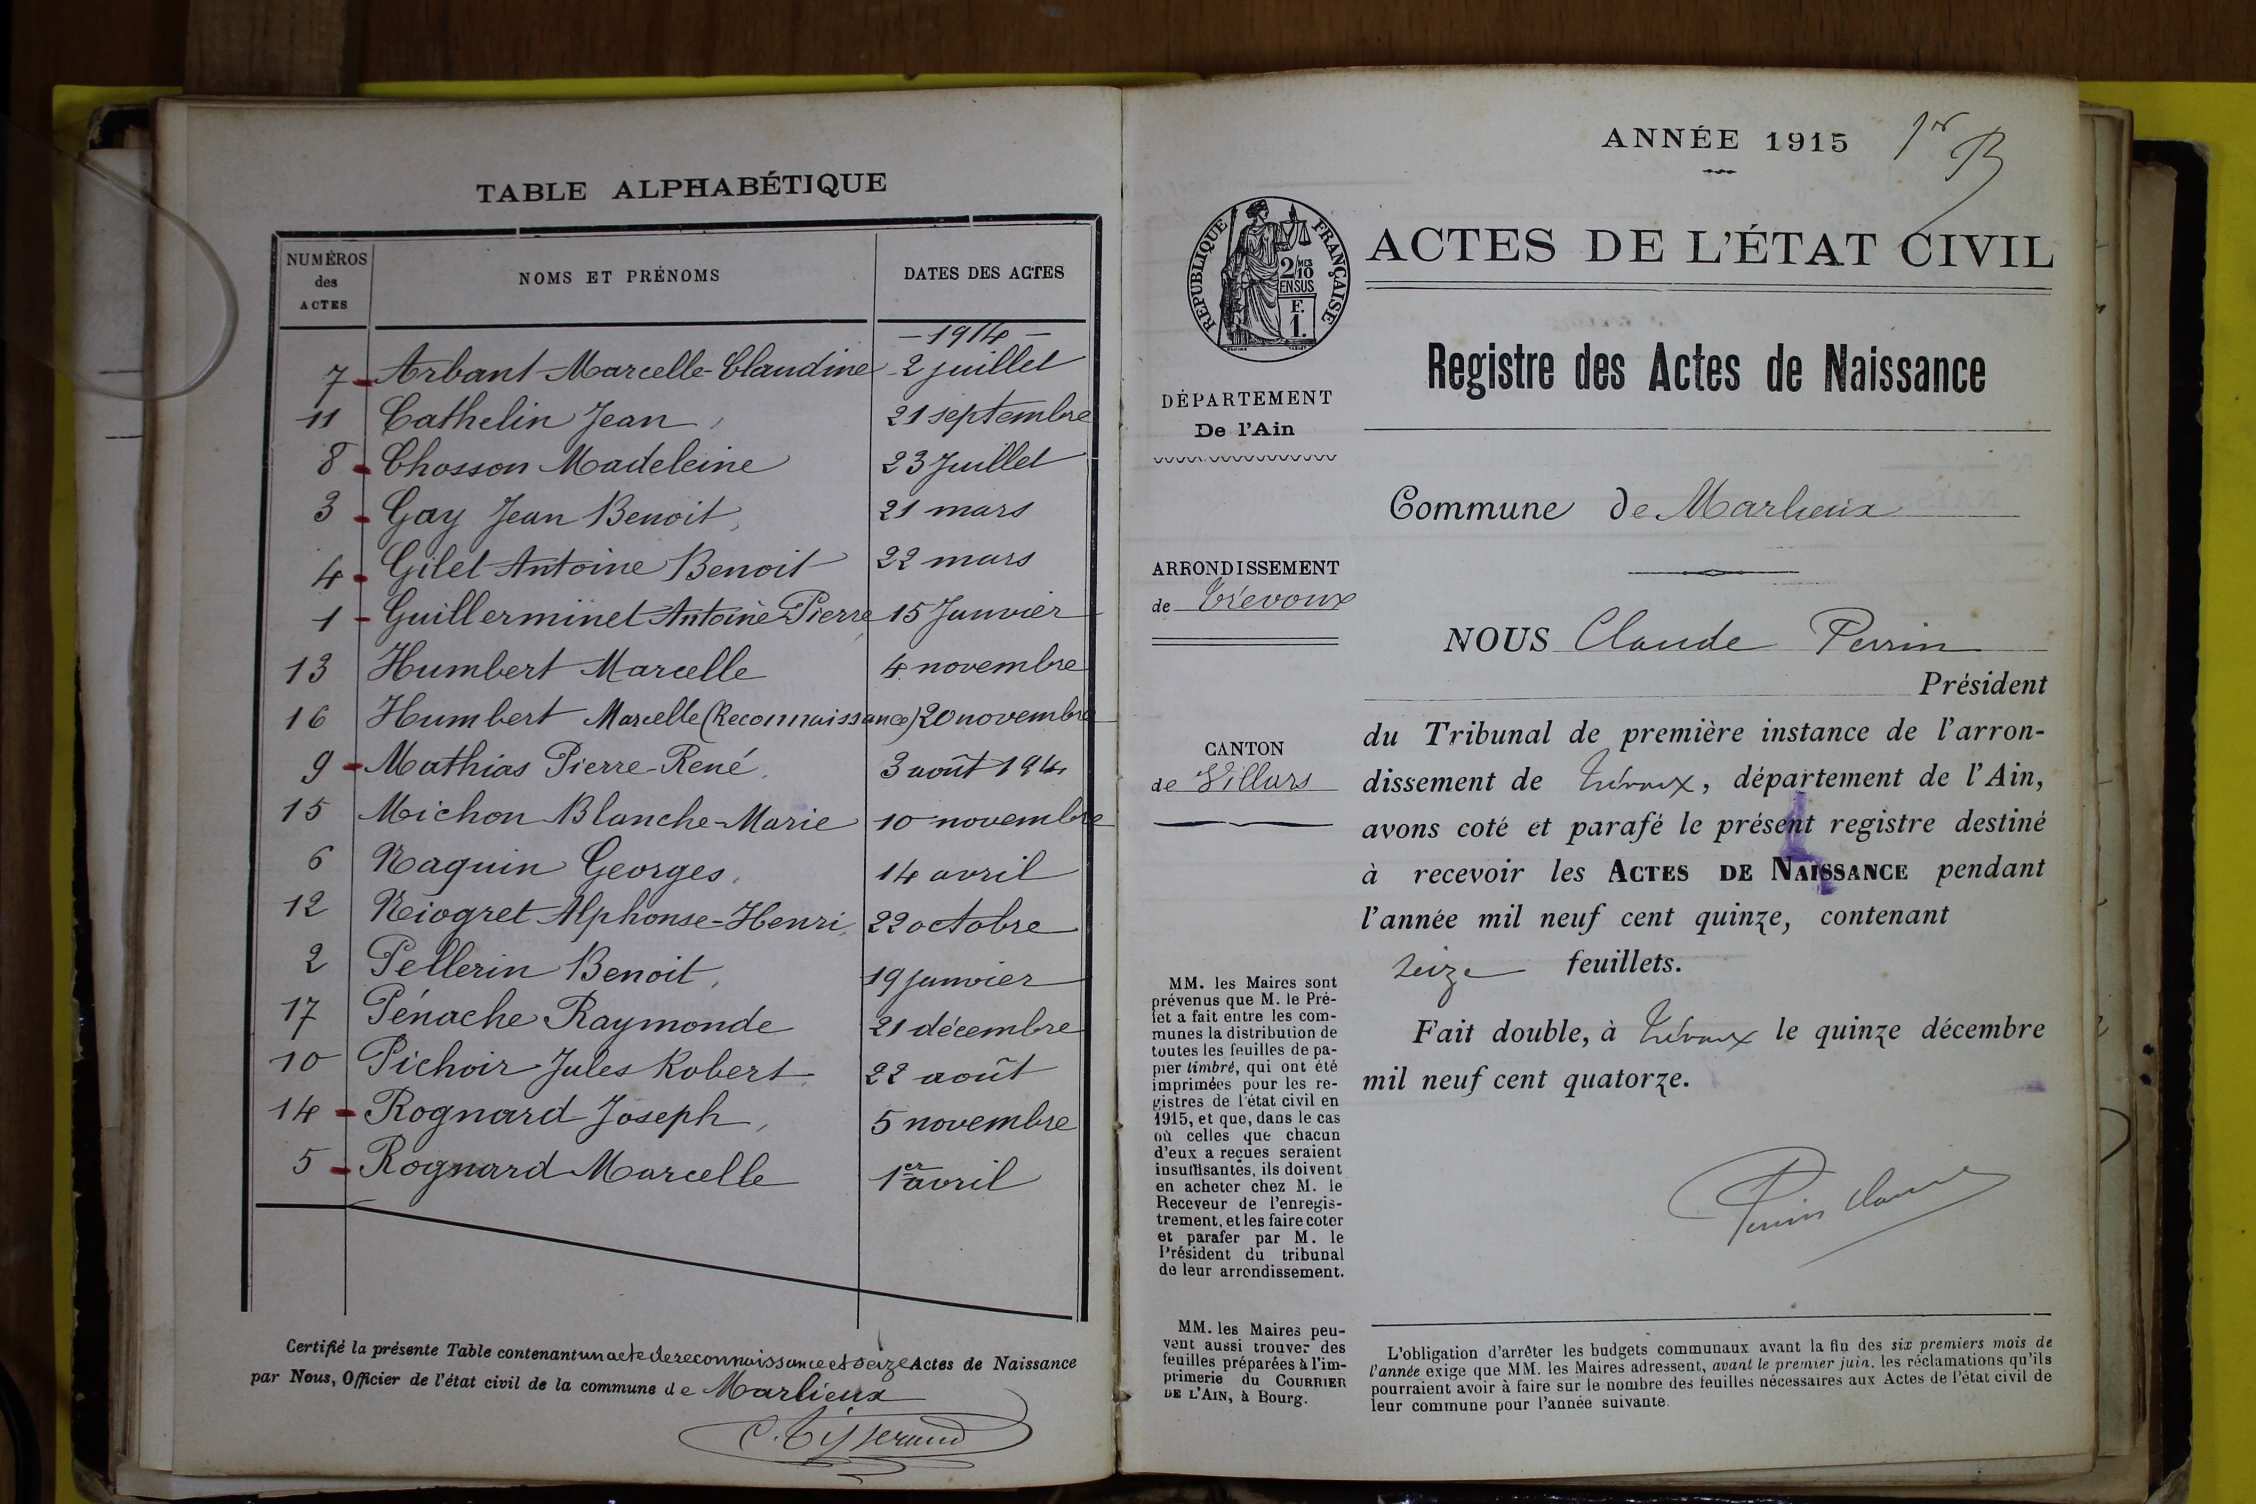 TABLE ALPHABÉTIQUE
NUMÉROS des ACTES
NOMS ET PRÉNOMS
DATES DES ACTES
- 1914 -
7 Arbant Marcelle-Claudine 2 juillet
11 Cathelin Jean 21 septembre
8 Chosson Madeleine 23 Juillet
3 Gay Jean Benoit 21 mars
4 Gilet Antoine Benoit 22 mars
1 Guillerminet Antoine Pierre 15 Janvier
13 Humbert Marcelle 4 novembre
16 Humbert Marcelle (Reconnaissance) 20 novembre
9 Mathias Pierre-René 3 août 194
15 Michon Blanche-Marie 10 novembre
6 Naquin Georges 14 avril
12 Niogret Alphonse-Henri 22 octobre
2 Pellerin Benoit 19 janvier
17 Pénache Raymonde 21 décembre
10 Pichoir Jules Robert 22 août
14 Rognard Joseph 5 novembre
5 Rognard Marcelle 1er avril
Certifié la présente Table contenant un acte de reconnaissance et seize Actes de Naissance
par Nous, Officier de l'état civil de la commune de Marlieux
C. Tisserand
ANNÉE 1915
1er
RÉPUBLIQUE FRANÇAISE
2/MES 10
EN SUS
F.
1.
DÉPARTEMENT
De l'Ain
ARRONDISSEMENT
de Trévoux
CANTON
de Villars
MM. les Maires sont
prévenus que M. le Pré-
fet a fait entre les com-
munes la distribution de
toutes les feuilles de pa-
pier timbré, qui ont été
imprimées pour les re-
gistres de l'état civil en
1915, et que, dans le cas
où celles que chacun
d'eux a reçues seraient
insuffisantes, ils doivent
en acheter chez M. le
Receveur de l'enregis-
trement, et les faire coter
et parafer par M. le
Président du tribunal
de leur arrondissement.
MM. les Maires peu-
vent aussi trouver des
feuilles préparées à l'im-
primerie du COURRIER
DE L'AIN, à Bourg.
ACTES DE L'ÉTAT CIVIL
Registre des Actes de Naissance
Commune de Marlieux
NOUS Claude Perrin
Président
du Tribunal de première instance de l'arron-
dissement de Trévoux, département de l'Ain,
avons coté et parafé le présent registre destiné
à recevoir les ACTES DE NAISSANCE pendant
l'année mil neuf cent quinze, contenant
seize feuillets.
Fait double, à Trévoux le quinze décembre
mil neuf cent quatorze.
Perrin Claude
L'obligation d'arrêter les budgets communaux avant la fin des six premiers mois de
l'année exige que MM. les Maires adressent, avant le premier juin, les réclamations qu'ils
pourraient avoir à faire sur le nombre des feuilles nécessaires aux Actes de l'état civil de
leur commune pour l'année suivante.